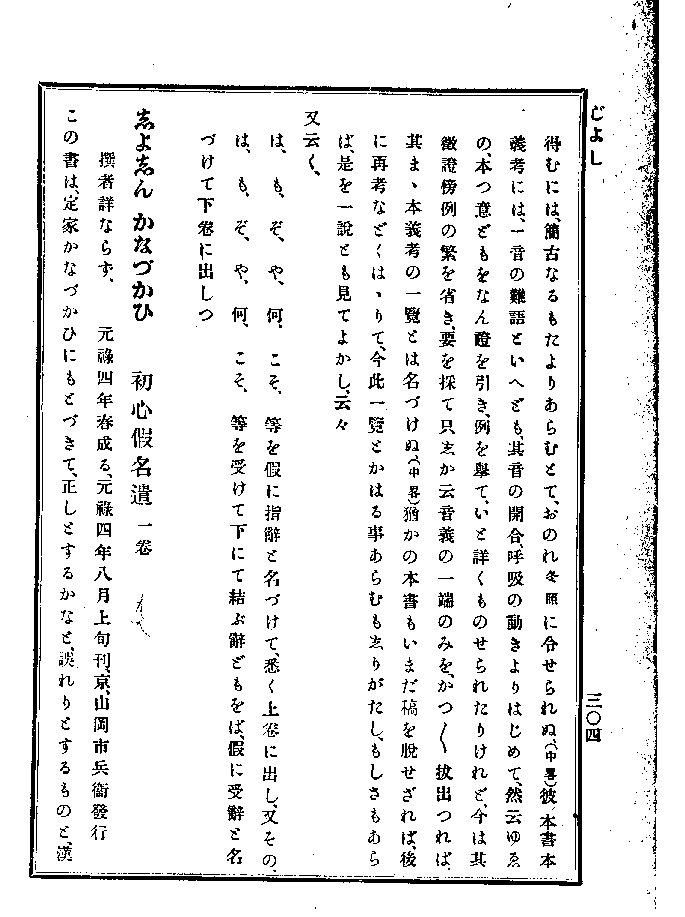 じよし
三〇四
得むには、簡古なるもたよりあらむとて、おのれ冬照に合せられぬ、(中畧)彼本書本
義考には、一音の難語といへども、其音の開合、呼吸の動きよりはじめて、然云ゆゑ
の、本つ意どもをなん證を引き、例を擧て、いと詳くものせられたりけれど、今は其
徵證傍例の繁を省き、要を採て只志か云音義の一端のみを、かつ〱拔出つれば、
其まゝ本義考の一覽とは名づけぬ、(中畧)猶かの本書もいまだ稿を脫せざれば、後
に再考などくはゝりて、今此一覽とかはる事あらむも志りがたし、もしさもあら
ば、是を一說とも見てよかし、云々
又云く、
は、も、ぞ、や、何、こそ、等を假に指辭と名づけて、悉く上卷に出し、又その、
は、も、ぞ、や、何、こそ、等を受けて下にて結ぶ辭どもをば、假に受辭と名
づけて下卷に出しつ
志よ志ん かなづかひ 初心假名遣 一卷
撰者詳ならず、 元祿四年春成る、元祿四年八月上旬刊、京、山岡市兵衞發行
この書は、定家かなづかひにもとづきて、正しとするかなと、誤れりとするものと、漢